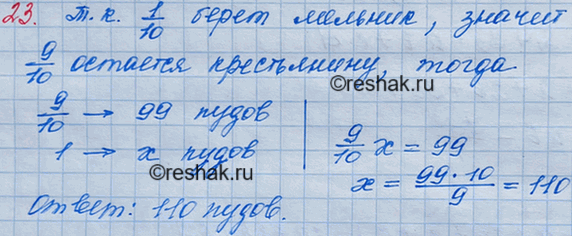 23. т.к. 1/10 берет мельник, значит
9/10 остается крестьянину, тогда
©reshak.ru
9/10 → 99 пудов
1 → x пудов
9/10 x = 99
x = 99·10/9 = 110
Ответ: 110 пудов.